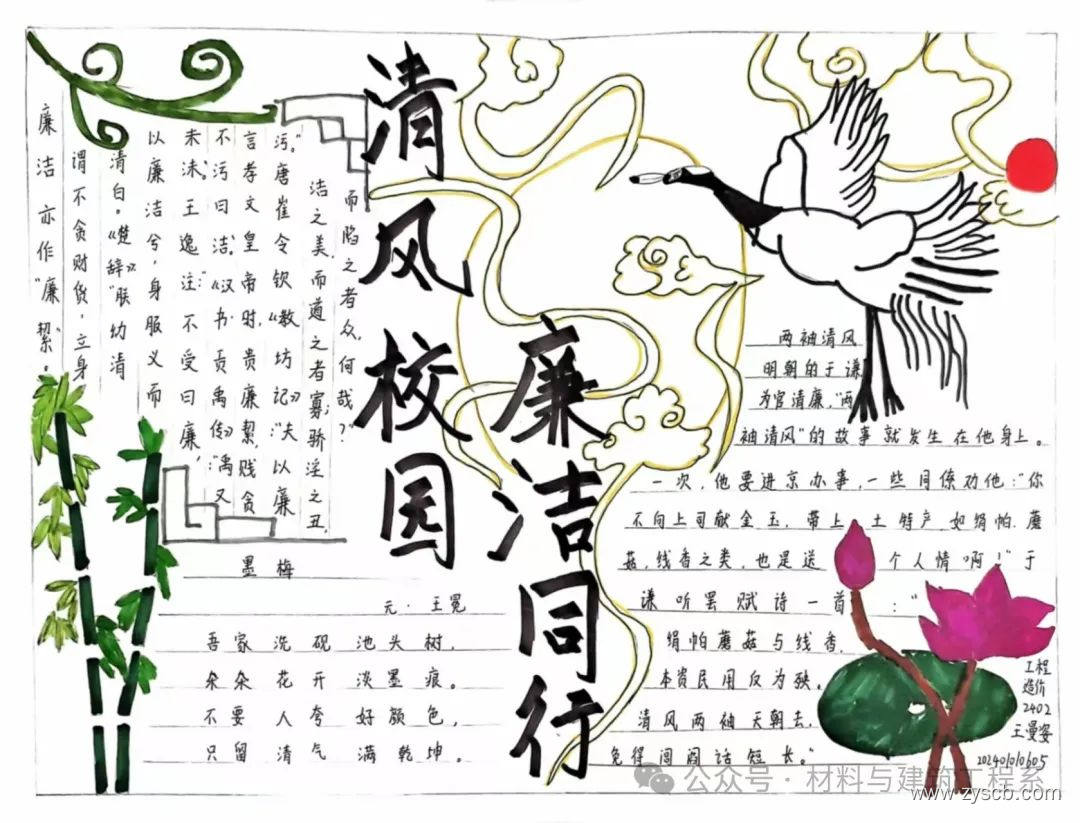 清风校园
廉洁同行
廉洁亦作"廉絜"。
谓不贪财货,立身
清白。《楚辞》"朕幼清
以廉洁兮,身服义而
未沬。"王逸注:"不受曰廉,
不污曰洁。"《汉书·贡禹传》:"禹又
言孝文皇帝时,贵廉絜,贱贪
污。"唐崔令钦《教坊记》:"夫以廉
洁之美,而道之者寡,骄淫之丑,
而陷之者众,何哉?"
墨梅
元·王冕
吾家洗砚池头树,
朵朵花开淡墨痕。
不要人夸好颜色,
只留清气满乾坤。
两袖清风
明朝的于谦
为官清廉,"两
袖清风"的故事就发生在他身上。
一次,他要进京办事,一些同僚劝他:"你
不向上司献金玉,带上土特产如绢帕、蘑
菇,线香之类,也是送个人情啊!"于
谦听罢赋诗一首:"
绢帕蘑菇与线香,
本资民用反为殃。
清风两袖天朝去,
免得闾阎话短长。"
工程
造价
2402
王曼姿
202401010605
公众号·材料与建筑工程系
www.zyscb.com